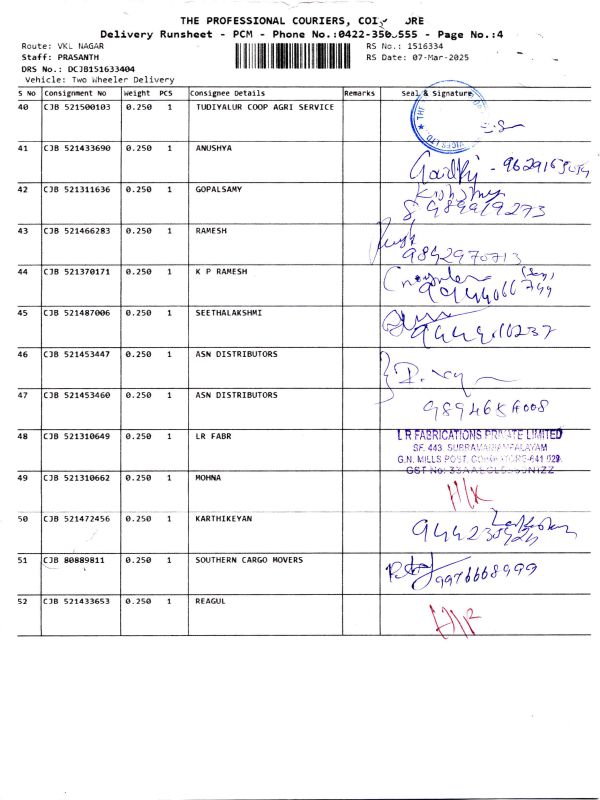 THE PROFESSIONAL COURIERS,
Delivery Runsheet - PCM - Phone No.:0422-350 555 - Page No.:4
Route: VKL NAGAR RS No.: 1516334
Staff: PRASANTH RS Date: 07-Mar-2025
DRS No.: DCJB151633404
Vehicle: Two Wheeler Delivery
S No Consignment No Weight PCS Consignee Details Remarks Seal & Signature
40 CJB 521500103 0.250 1 TUDIYALUR COOP AGRI SERVICE
41 CJB 521433690 0.250 1 ANUSHYA
42 CJB 521311636 0.250 1 GOPALSAMY
43 CJB 521466283 0.250 1 RAMESH
9842970713
44 CJB 521370171 0.250 1 K P RAMESH
45 CJB 521487006 0.250 1 SEETHALAKSHMI
46 CJB 521453447 0.250 1 ASN DISTRIBUTORS
47 CJB 521453460 0.250 1 ASN DISTRIBUTORS
48 CJB 521310649 0.250 1 LR FABR
L R FABRICATIONS PRIVATE LIMITED
SF. 443, SUBRAMANIAMPALAYAM
G.N. MILLS POST, COIMBATORE-641 029.
GST No:
49 CJB 521310662 0.250 1 MOHNA
50 CJB 521472456 0.250 1 KARTHIKEYAN
51 CJB 80889811 0.250 1 SOUTHERN CARGO MOVERS 9976668999
52 CJB 521433653 0.250 1 REAGUL